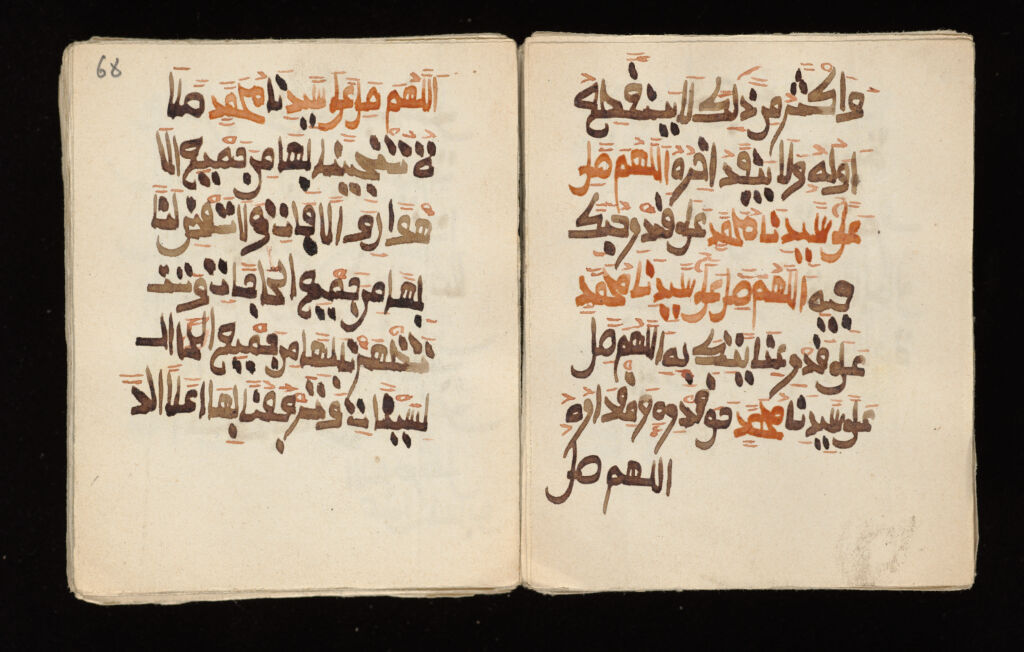 واكثر من ذلك لا ينقطع
اوله ولا ينفد اخره اللهم صل
على سيدنا محمد على قدر حبك
فيه اللهم صل على سيدنا محمد
على قدر عنايتك به اللهم صل
على سيدنا محمد حق قدره ومقداره
اللهم صل
68
اللهم صل على سيدنا محمد صلا
ة تنجينا بها من جميع الا
هوال و الافات وتقض لنا
بها من جميع الحاجات وتت
تطهرنا بها من جميع
لسيئات وترفعنا بها اعلا الا